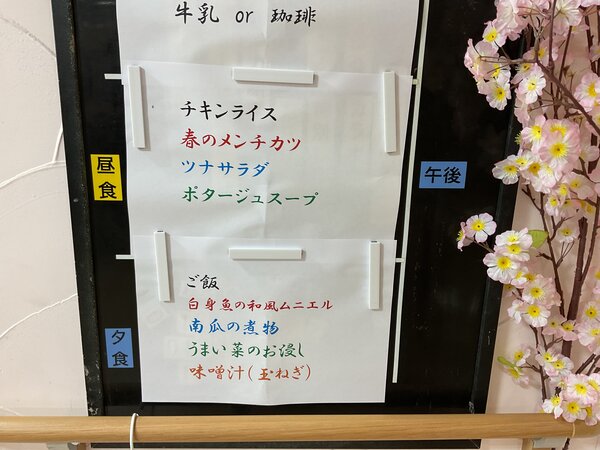 牛乳 or 珈琲
チキンライス
春のメンチカツ
ツナサラダ
ポタージュスープ
昼食
午後
ご飯
白身魚の和風ムニエル
南瓜の煮物
うまい菜のお浸し
味噌汁(玉ねぎ)
夕食